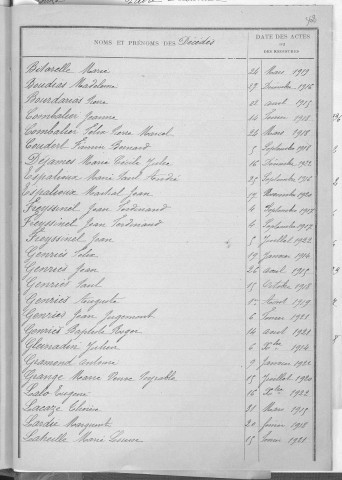 NOMS ET PRÉNOMS DES Décédés DATE DES ACTES
OU
DES REGISTRES
Bitarelle Marie 24 Mars 1919
Boudias Madeleine 19 1916
Bourdarias Pierre 12 avril 1915
Combalier Jeanne 14 février 1918
Combalier Félix Pierre Marcel 22 Mars 1918
Coudert Firmin Bernard 5 Septembre 1918
Dejames Marie 16 Décembre 1922
Espalieux Marie Paul André 29 Septembre 1916
Espalieux Martial Jean 17 Novembre 1920
Freyssinel Jean Ferdinand 4 Septembre 1917
Freyssinel Jean Ferdinand 6 Septembre 1917
Freyssinel Jean 5 Juillet 1922
Genries Félix 19 Janvier 1914
Genries Jean 26 août 1915
Genries Paul 15 Octobre 1918
Genries Auguste 10 1919
Genries Jean 6 février 1921
Genries Baptiste Roger 14 août 1921
Glomadin Julien 6 Xbre 1914
Gramond Antoine 9 Janvier 1922
Grange Marie 15 Juillet 1920
Labo Eugénie 16 Xbre 1922
Lacaze 21 Mars 1915
Lardes Marguerite 20 février 1918
Latreille Marie 18 février 1921